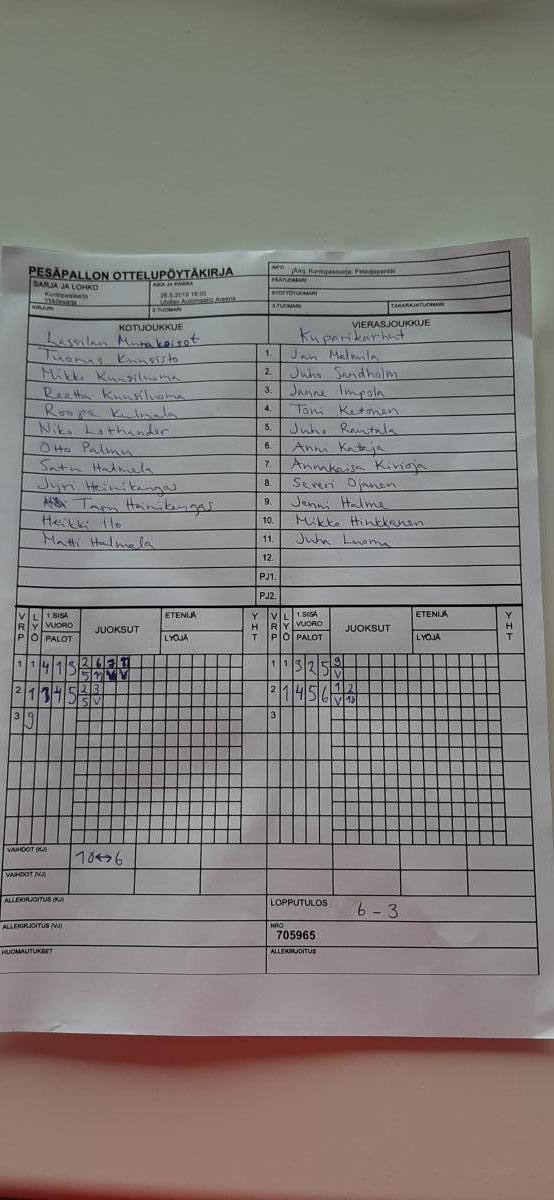 PESÄPALLON OTTELUPÖYTÄKIRJA
INFO
jÄrrj. Kuntopesisarja: Pelaajapankki
SARJA JA LOHKO
Kuntopesisarja
Yksilösarja
AIKA JA PAIKKA
Ulvilan Automaatio Areena
PÄÄTUOMARI
SYÖTTÖTUOMARI
KIRJURI
2-TUOMARI
3-TUOMARI
TAKARAJATUOMARI
KOTIJOUKKUE
VIERASJOUKKUE
Lassilan Murskaajat
Kuparikarhut
Tuomas Kuusisto 1. Jan Malmila
Mikko Kuusiluoma 2. Juho Sandholm
Reetta Kuusiluoma 3. Janne Impola
Roope Kulmala 4. Toni Ketonen
Niko Lothander 5. Juho Rantala
Otto Palmu 6. Anni Kataja
Satu Halmela 7. Annakaisa Kivioja
Jyri Heinikangas 8. Severi Ojanen
Taru Heinikangas 9. Jenni Halme
Heikki Ilo 10. Mikko Hinkkanen
Matti Halmela 11. Juha Luoma
12.
PJ1.
PJ2.
VRP LYÖ 1.SISÄ VUORO PALOT JUOKSUT ETENIJÄ LYÖJÄ YHT VRP LYÖ 1.SISÄ VUORO PALOT JUOKSUT ETENIJÄ LYÖJÄ YHT
1 1 4 1 3 2 6 7 11 1 1 3 2 5 9
5 11 V V V
2 1 3 4 5 2 3 2 1 4 5 6 1 2
5 V V 10
3 9 3
VAIHDOT (KJ)
10↔6
VAIHDOT (VJ)
ALLEKIRJOITUS (KJ)
LOPPUTULOS 6 - 3
ALLEKIRJOITUS (VJ)
NRO
705965
HUOMAUTUKSET
ALLEKIRJOITUS